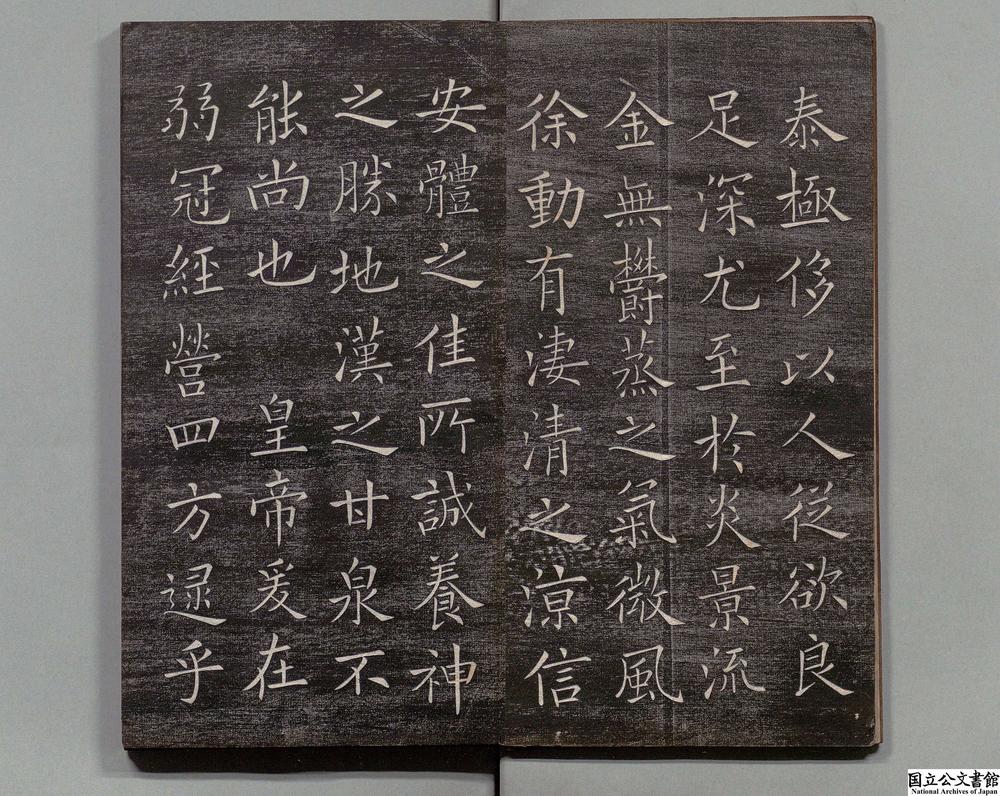 泰極侈以人從欲良
足深尤至於炎景流
金無鬱蒸之氣微風
徐動有淒清之涼信
安體之佳所誠養神
之勝地漢之甘泉不
能尚也　皇帝爰在
弱冠經營四方逮乎
国立公文書館
National Archives of Japan